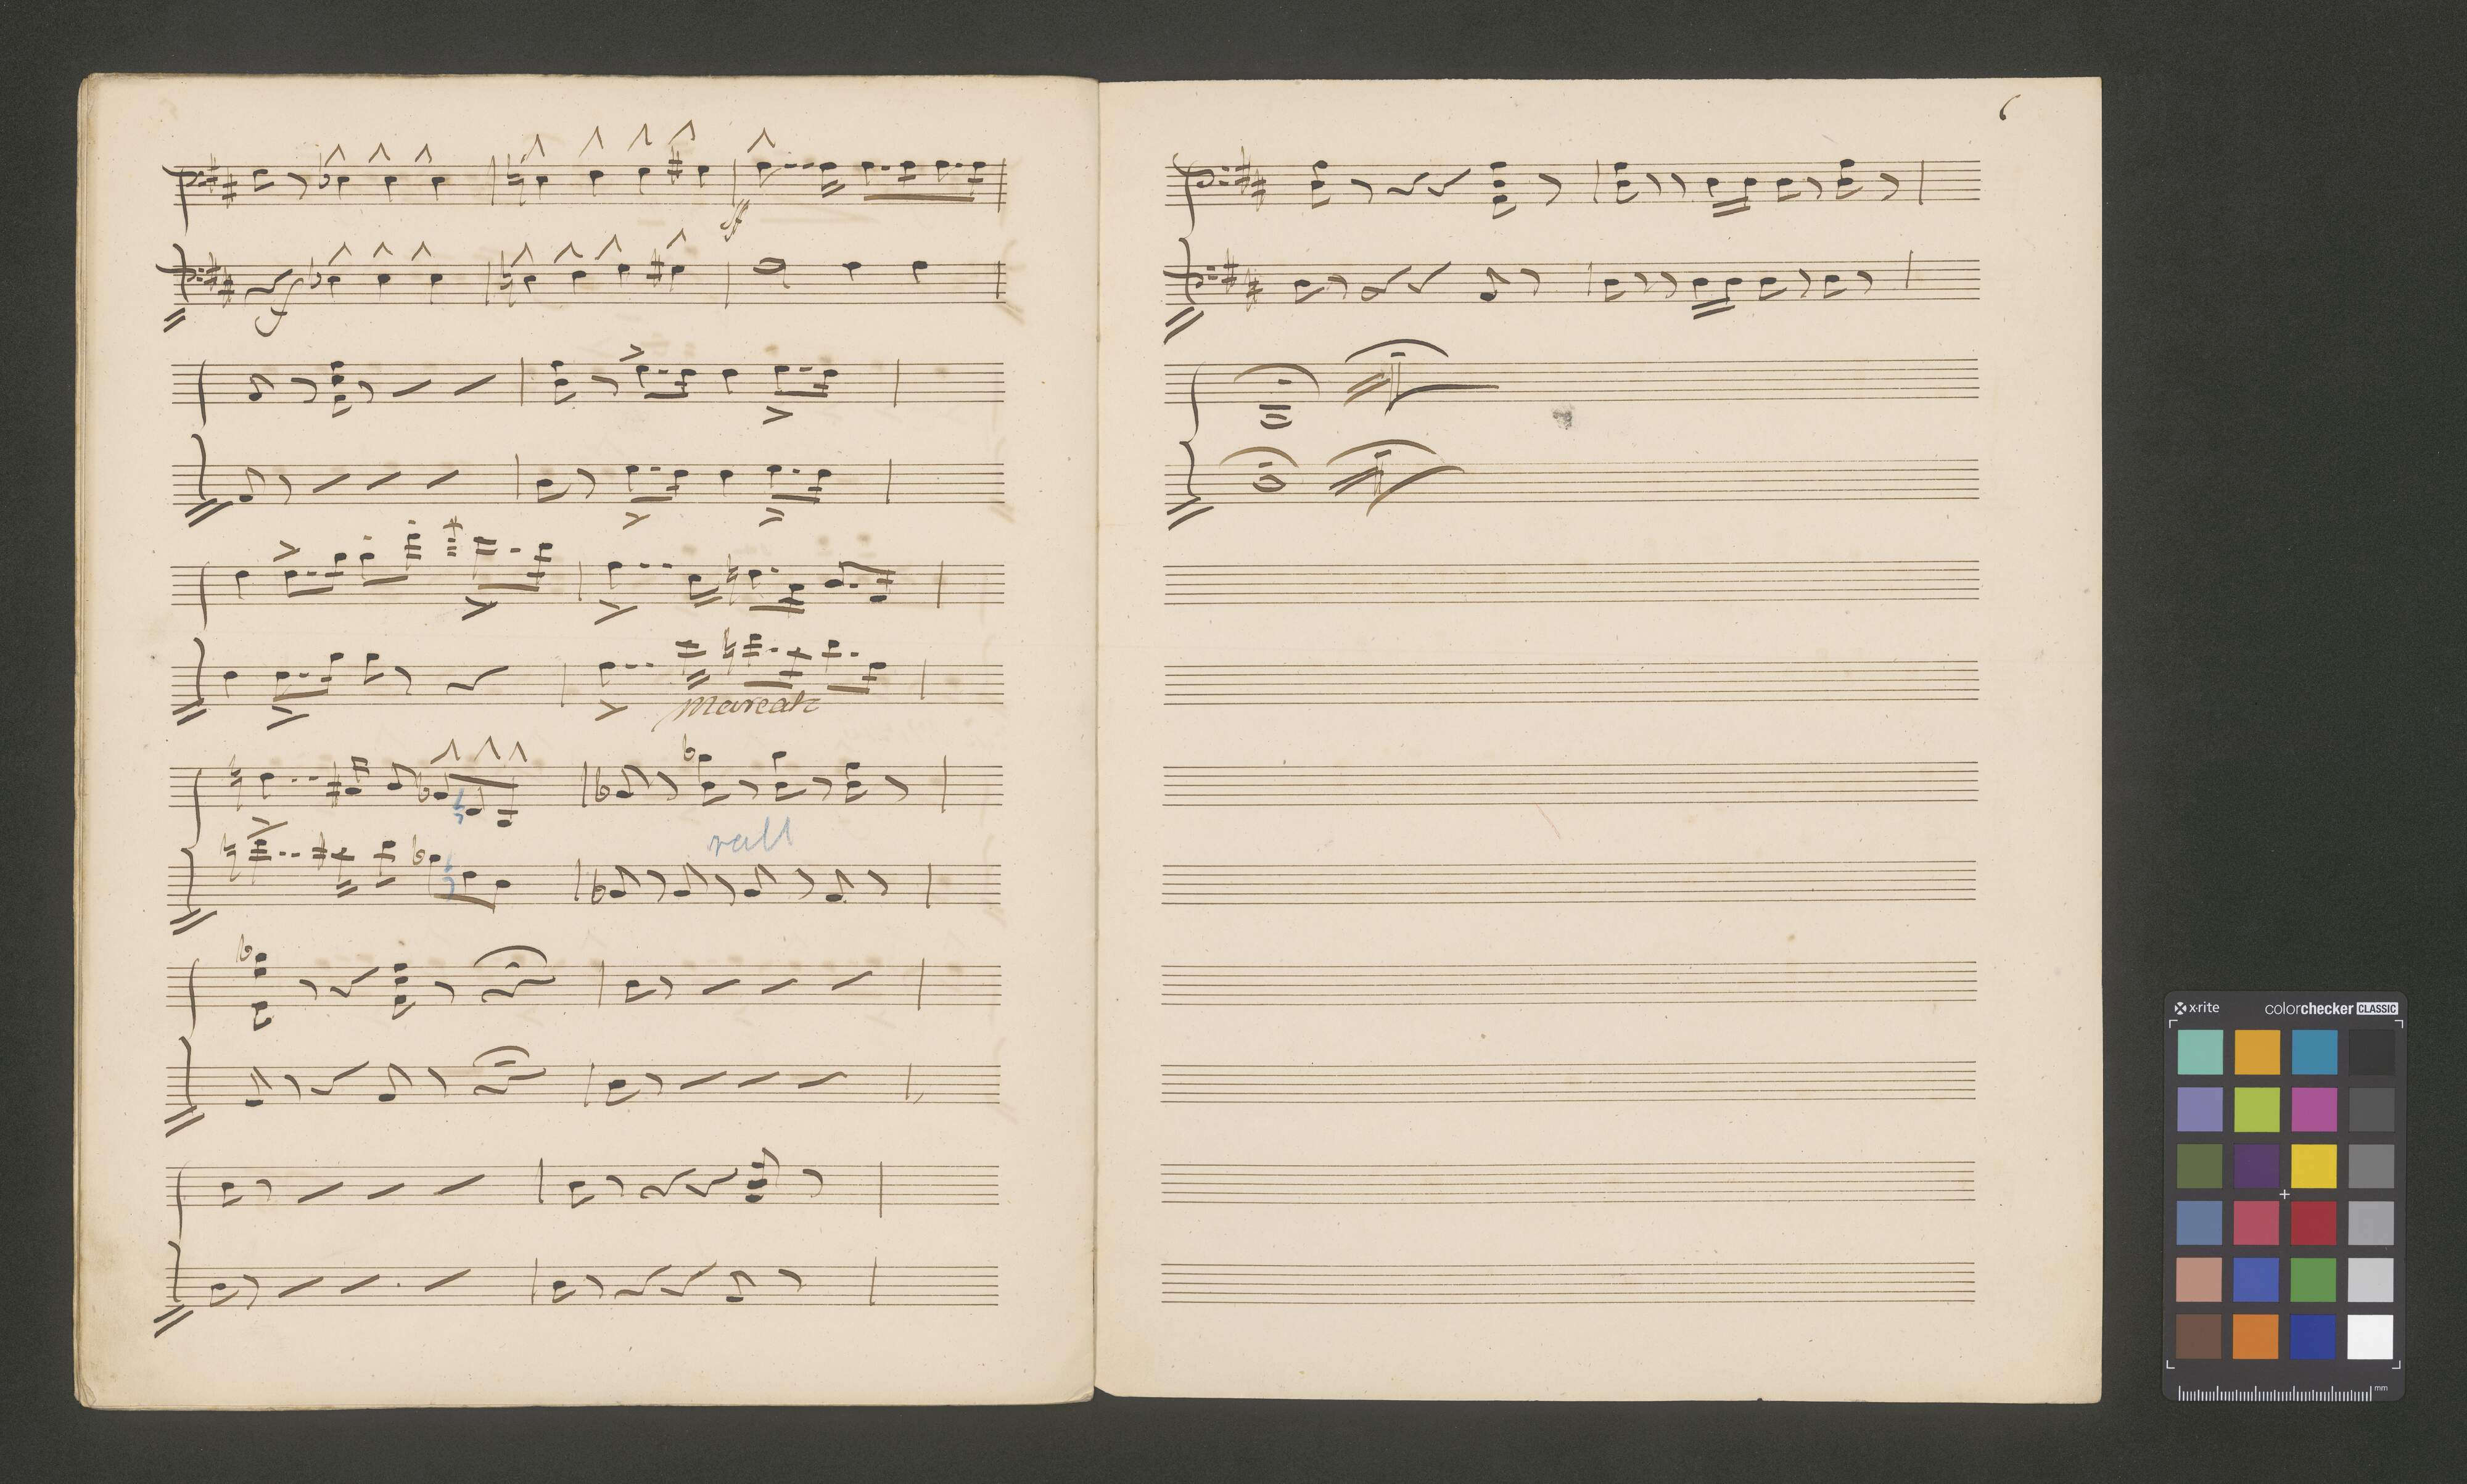 6
ff
f
Marcato
rall
x·rite colorchecker CLASSIC
mm